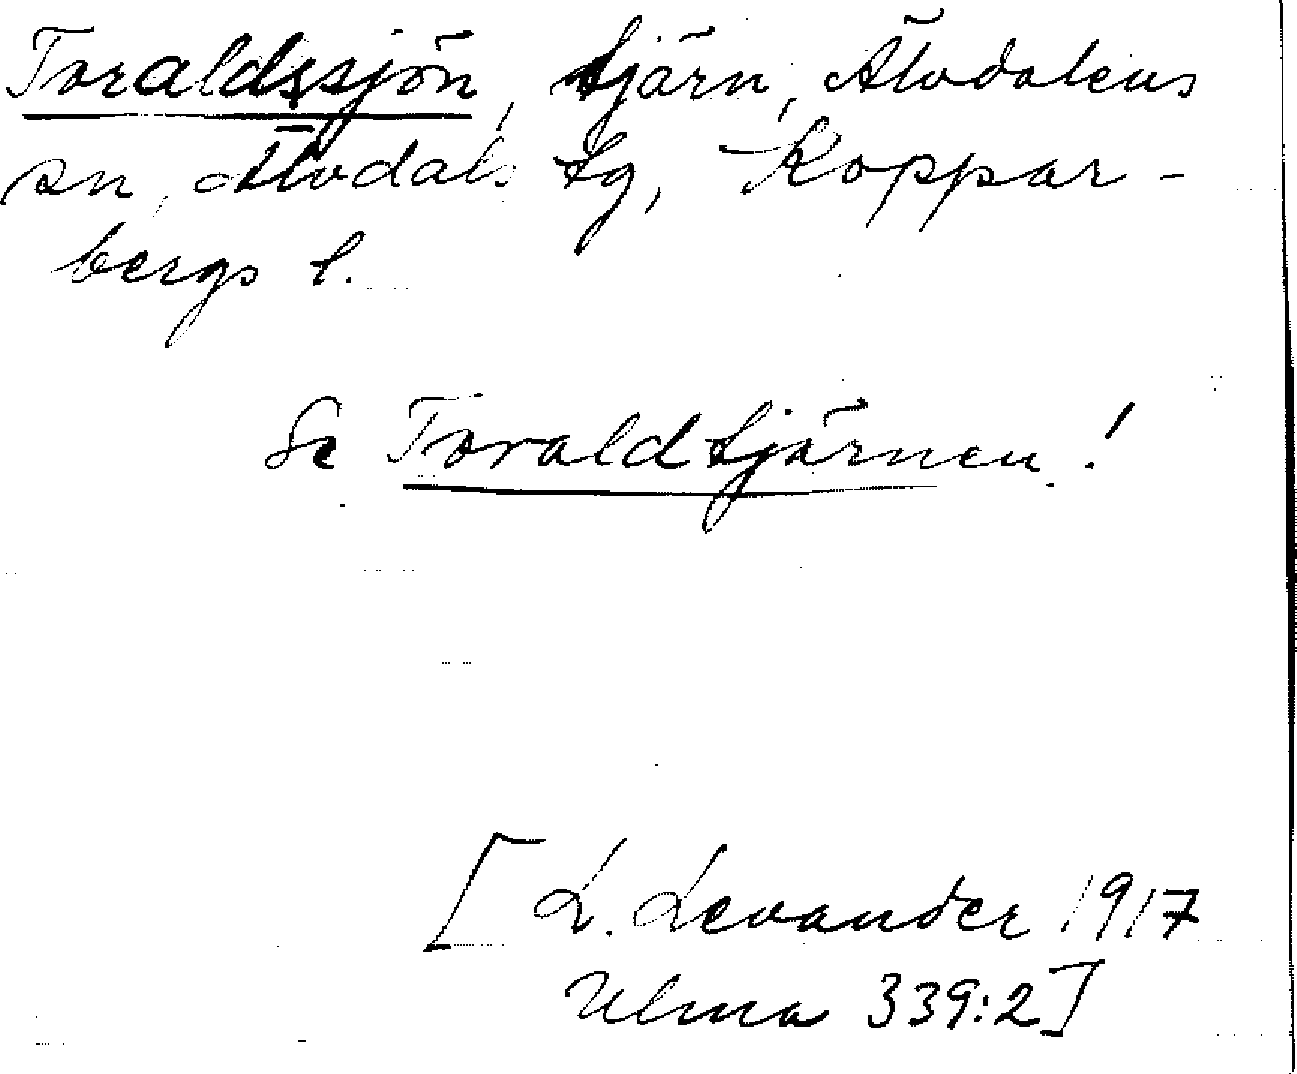 Toraldssjön, tjärn, Älvdalens
sn, Älvdals tg, Koppar-
bergs l.
Se Toraldtjärnen!
[L. Levander 1917
Ulma 339:2]